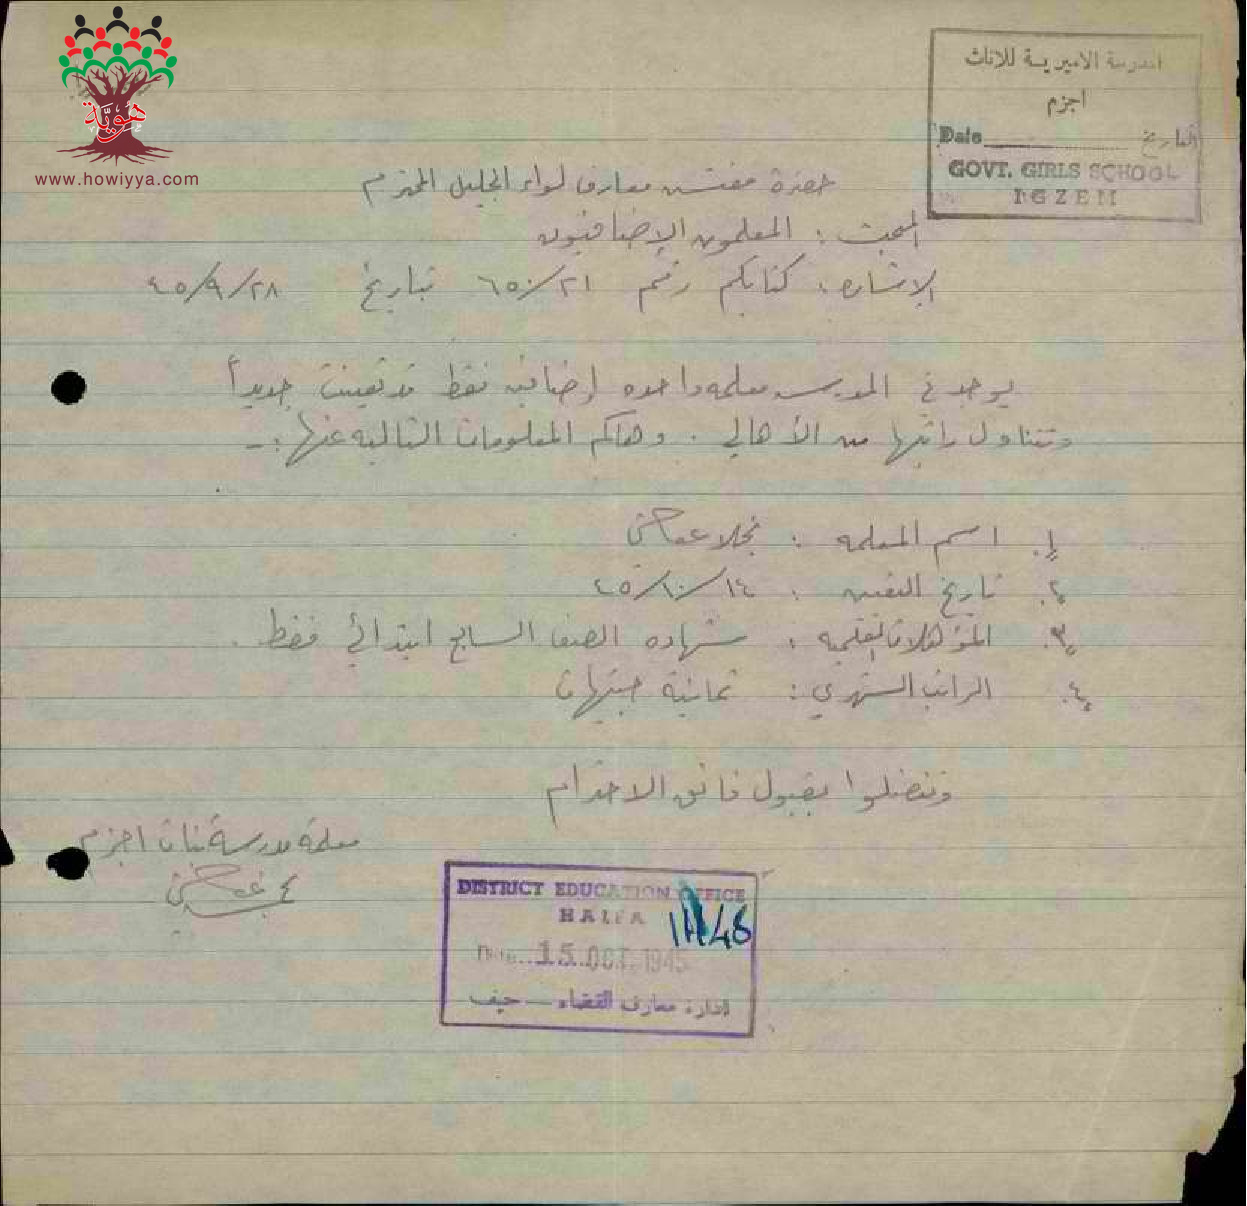 هوية
www.howiyya.com
المدرسة الاميرية للاناث
اجزم
Date التاريخ
GOVT. GIRLS SCHOOL
IGZEM
حضرة مفتش معارف لواء الجليل المحترم
المبحث : المعلمون الإضافيون
الإشاره : كتابكم رقم ٦٥/٢١ بتاريخ ٤٥/٩/٢٨
يوجد في المدرسه معلمه واحده إضافيه فقط قد تعينت جديداً
وتتناول راتبها من الأهالي . وهاكم المعلومات التاليه عنها :-
١. اسم المعلمه : نجلا
٢. تاريخ التعيين : ٤٥/١٠/١٤
٣. المؤهلات العلميه : شهاده الصف السابع ابتدائي فقط .
٤. الراتب الشهري : ثمانية جنيهات
وتفضلوا بقبول فائق الاحترام
معلمة مدرسة بنات اجزم
DISTRICT EDUCATION OFFICE
HAIFA
Date 15 OCT. 1945
ادارة معارف القضاء – حيفا